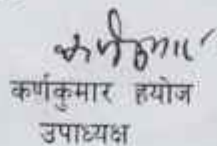 कर्णकुमार हयोज
उपाध्यक्ष